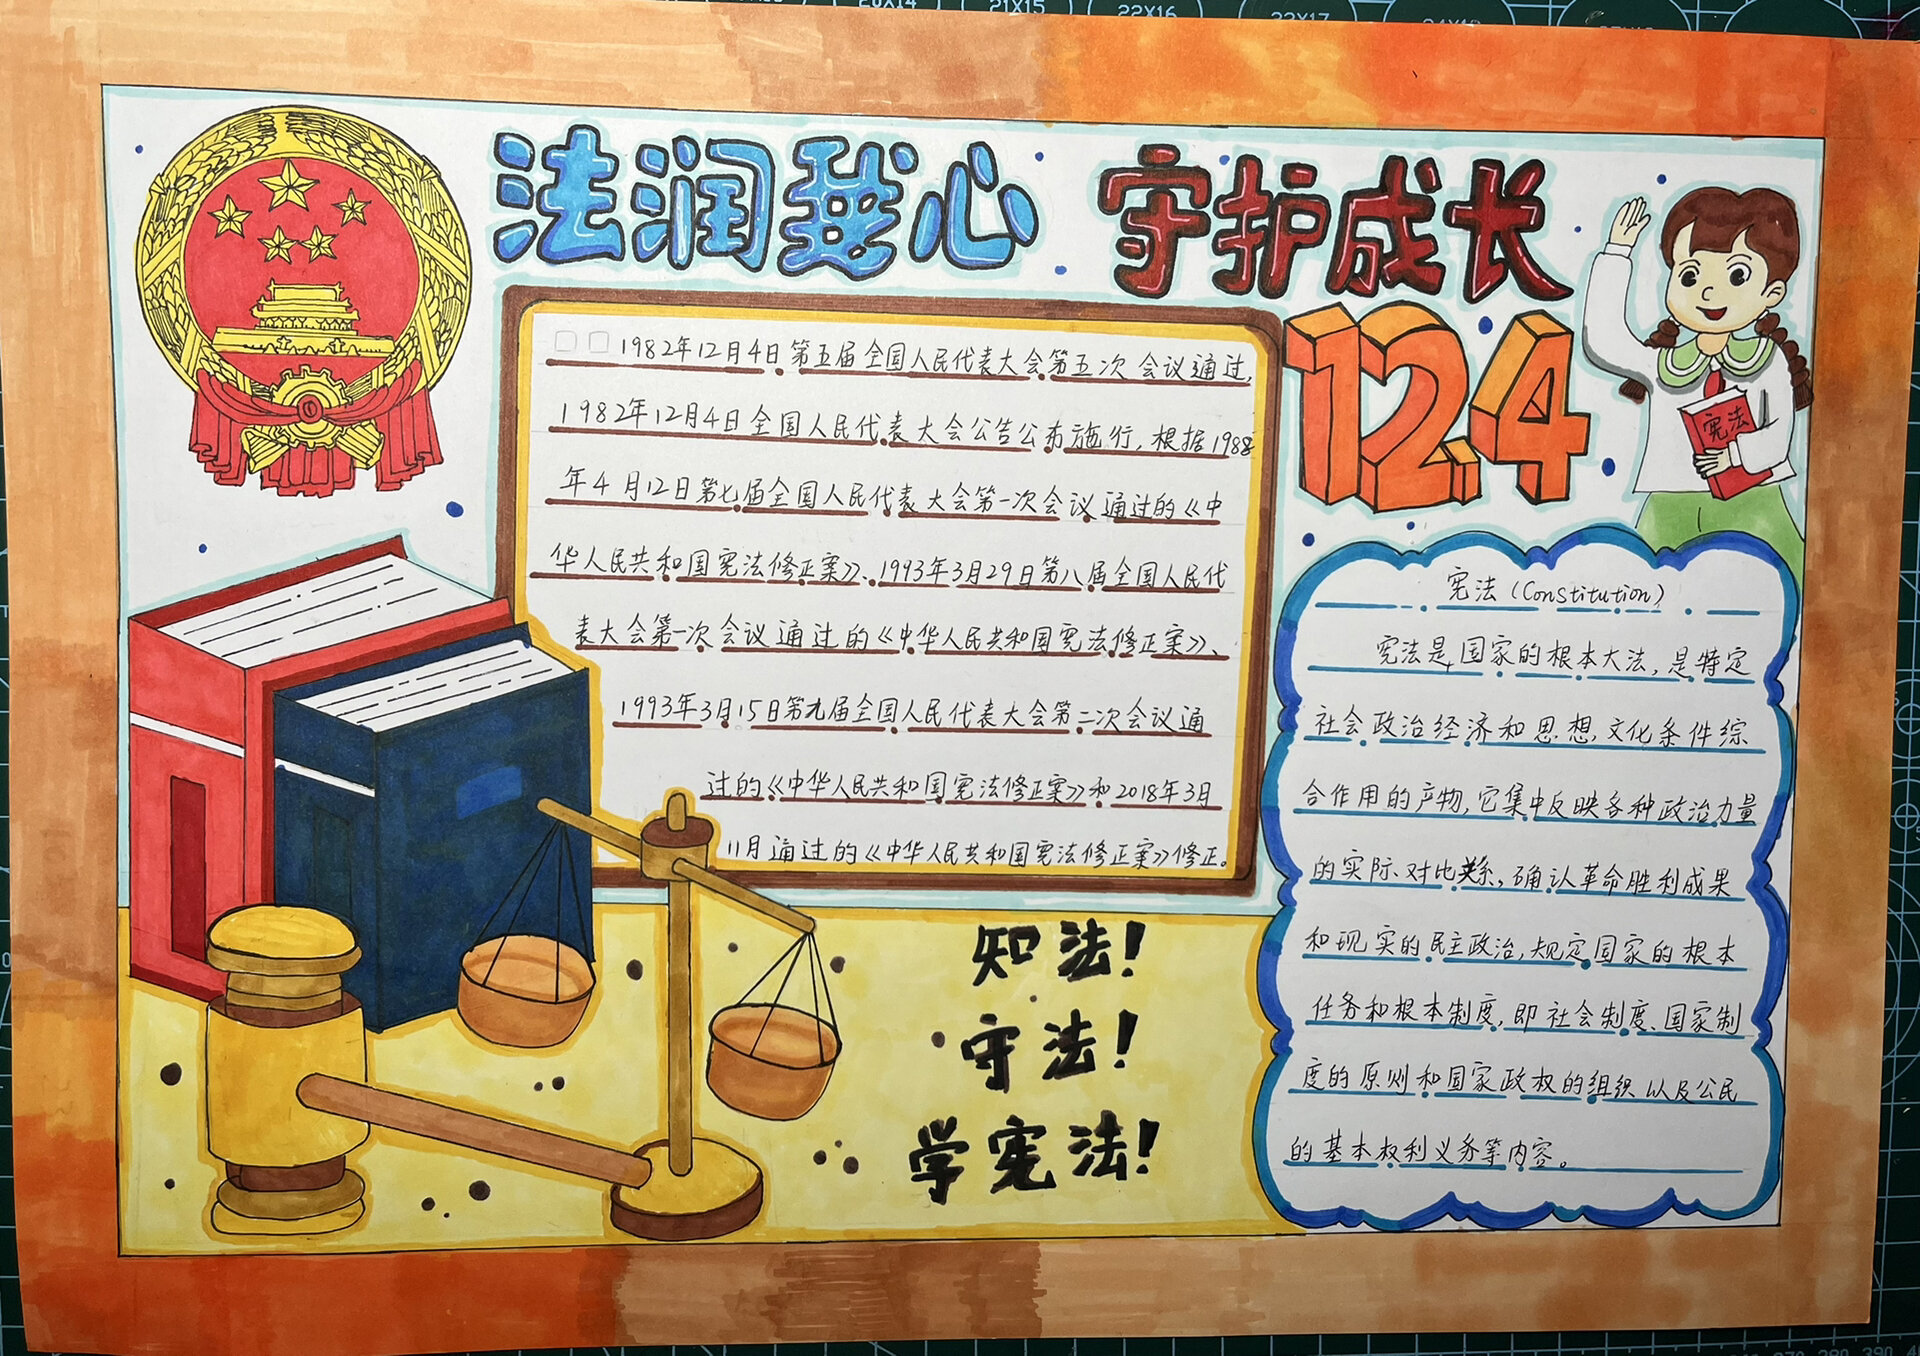 法润我心 守护成长
12.4
宪法
1982年12月4日第五届全国人民代表大会第五次会议通过,
1982年12月4日全国人民代表大会公告公布施行,根据1988
年4月12日第七届全国人民代表大会第一次会议通过的《中
华人民共和国宪法修正案》、1993年3月29日第八届全国人民代
表大会第一次会议通过的《中华人民共和国宪法修正案》、
1993年3月15日第九届全国人民代表大会第二次会议通
过的《中华人民共和国宪法修正案》和2018年3月
11月通过的《中华人民共和国宪法修正案》修正。
宪法(Constitution)
宪法是国家的根本大法,是特定
社会政治经济和思想文化条件综
合作用的产物,它集中反映各种政治力量
的实际对比关系,确认革命胜利成果
和现实的民主政治,规定国家的根本
任务和根本制度,即社会制度、国家制
度的原则和国家政权的组织以及公民
的基本权利义务等内容。
知法!
守法!
学宪法!
20X14
21X15
22X16
22X17